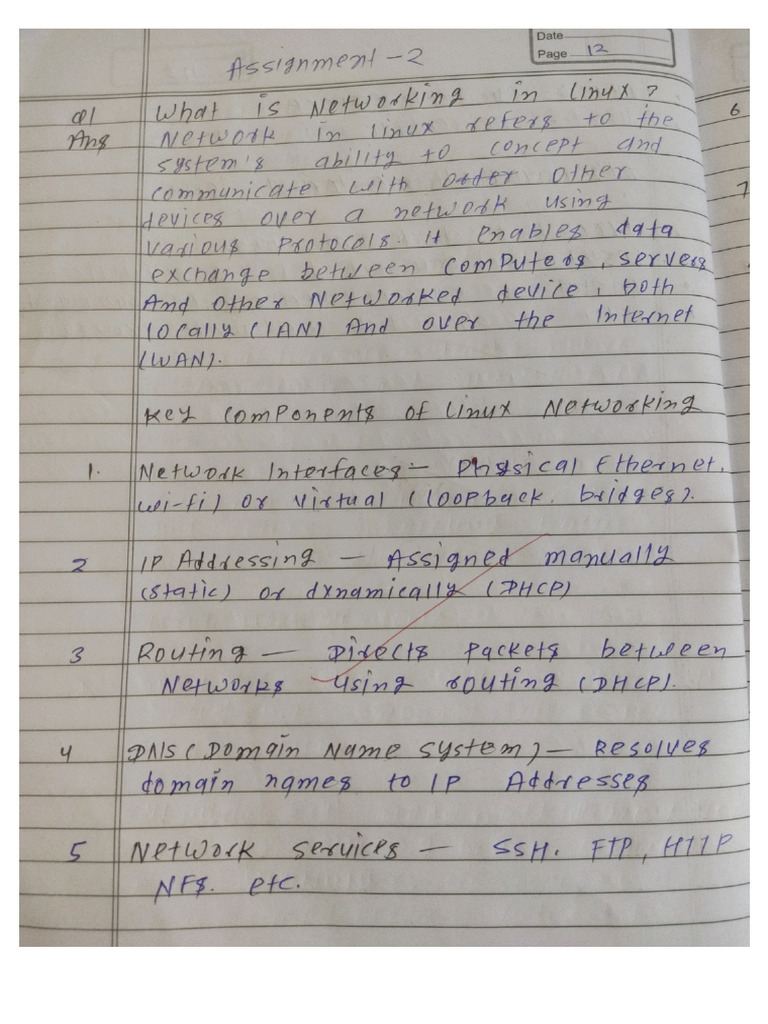 Date
Page 12
Assignment - 2
Q1 What is Networking in Linux?
Ans Network in linux refers to the
system's ability to concept and
communicate with order other
devices over a network using
various Protocols. It enables data
exchange between computers, servers
And other Networked device, both
locally (LAN) And over the Internet
(WAN).
Key Components of Linux Networking
1. Network Interfaces - Physical Ethernet,
wi-fi) or virtual (loopback, bridges).
2 IP Addressing - Assigned manually
(static) or dynamically (DHCP)
3 Routing - Directs Packets between
Networks using routing (DHCP).
4 DNS (Domain Name System) - Resolves
domain names to IP Addresses
5 Network services - SSH. FTP, HTTP
NFS. etc.
6
7